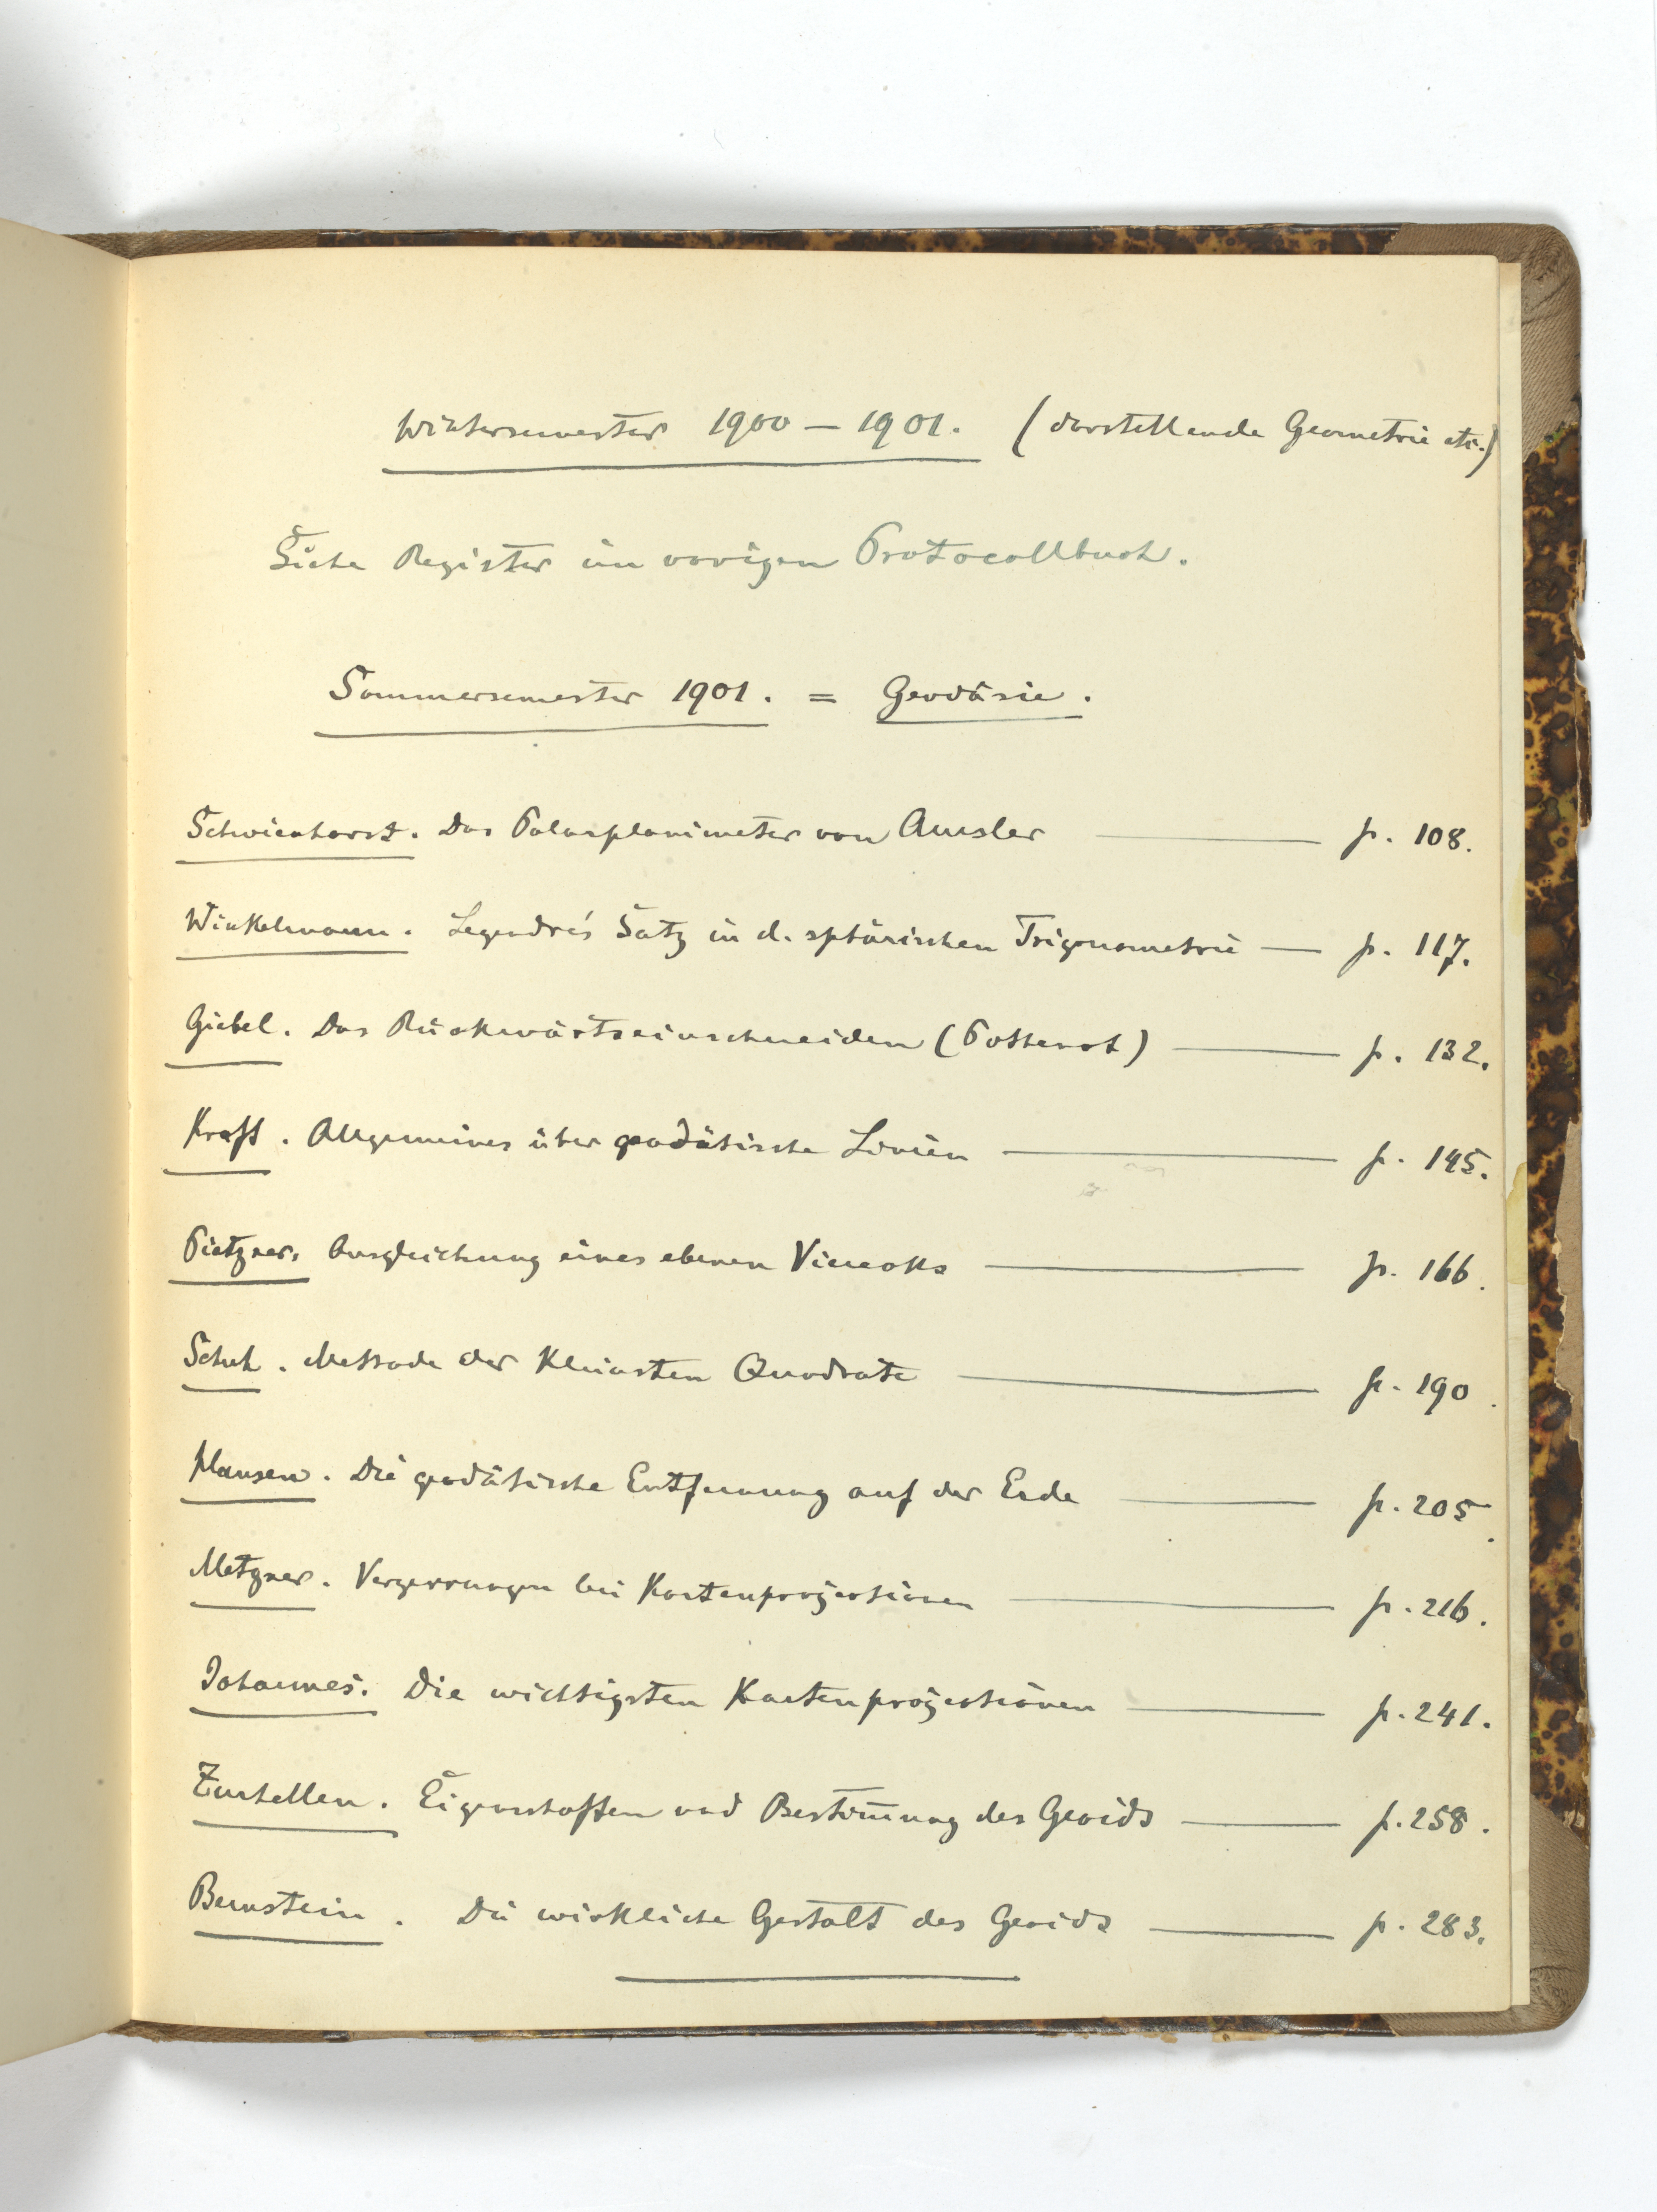 Wintersemester 1900 – 1901. (darstellende Geometrie etc.)
Siehe Register im vorigen Protocollbuch.
Sommersemester 1901. = Geodäsie.
Schwienhorst. Das Polarplanimeter von Amsler — p. 108.
Winkelmann. Legendre's Satz in d. sphärischen Trigonometrie — p. 117.
Giebel. Das Rückwärtseinschneiden (Pothenot) — p. 132.
Kraft. Allgemeines über geodätische Linien — p. 145.
Pietzner. Ausgleichung eines ebenen Vierecks — p. 166.
Schuh. Methode der kleinsten Quadrate — p. 190.
Hansen. Die geodätische Entfernung auf der Erde — p. 205.
Metzner. Verzerrungen bei Kartenprojectionen — p. 216.
Johannes. Die wichtigsten Kartenprojectionen — p. 241.
Zurhellen. Eigenschaften und Bestim̄ung des Geoids — p. 258.
Bernstein. Die wirkliche Gestalt des Geoids — p. 283.